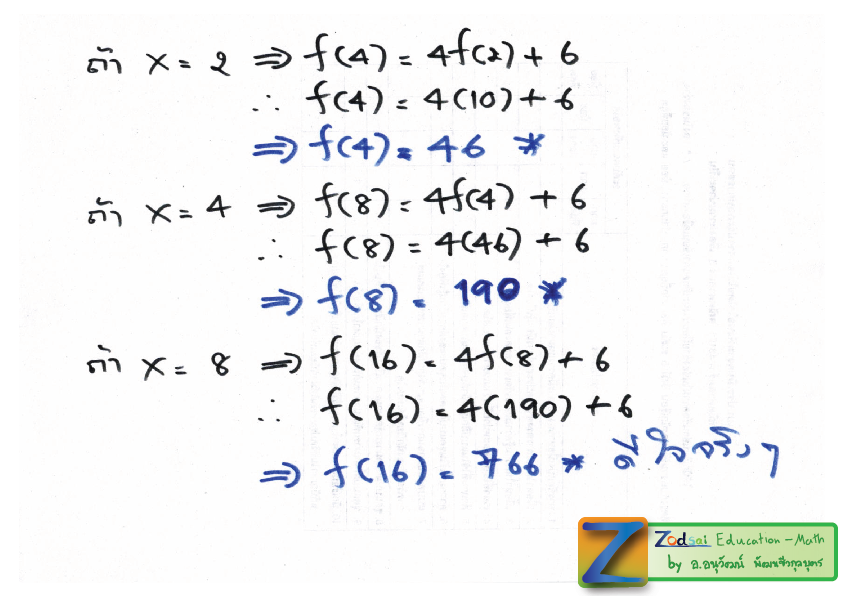 ถ้า x = 2 ⇒ f(4) = 4f(2) + 6
∴ f(4) = 4(10) + 6
⇒ f(4) = 46 *
ถ้า x = 4 ⇒ f(8) = 4f(4) + 6
∴ f(8) = 4(46) + 6
⇒ f(8) = 190 *
ถ้า x = 8 ⇒ f(16) = 4f(8) + 6
∴ f(16) = 4(190) + 6
⇒ f(16) = 766 * ดีใจจริง ๆ
Z Zodsai Education - Math
by อ.อนุวัฒน์